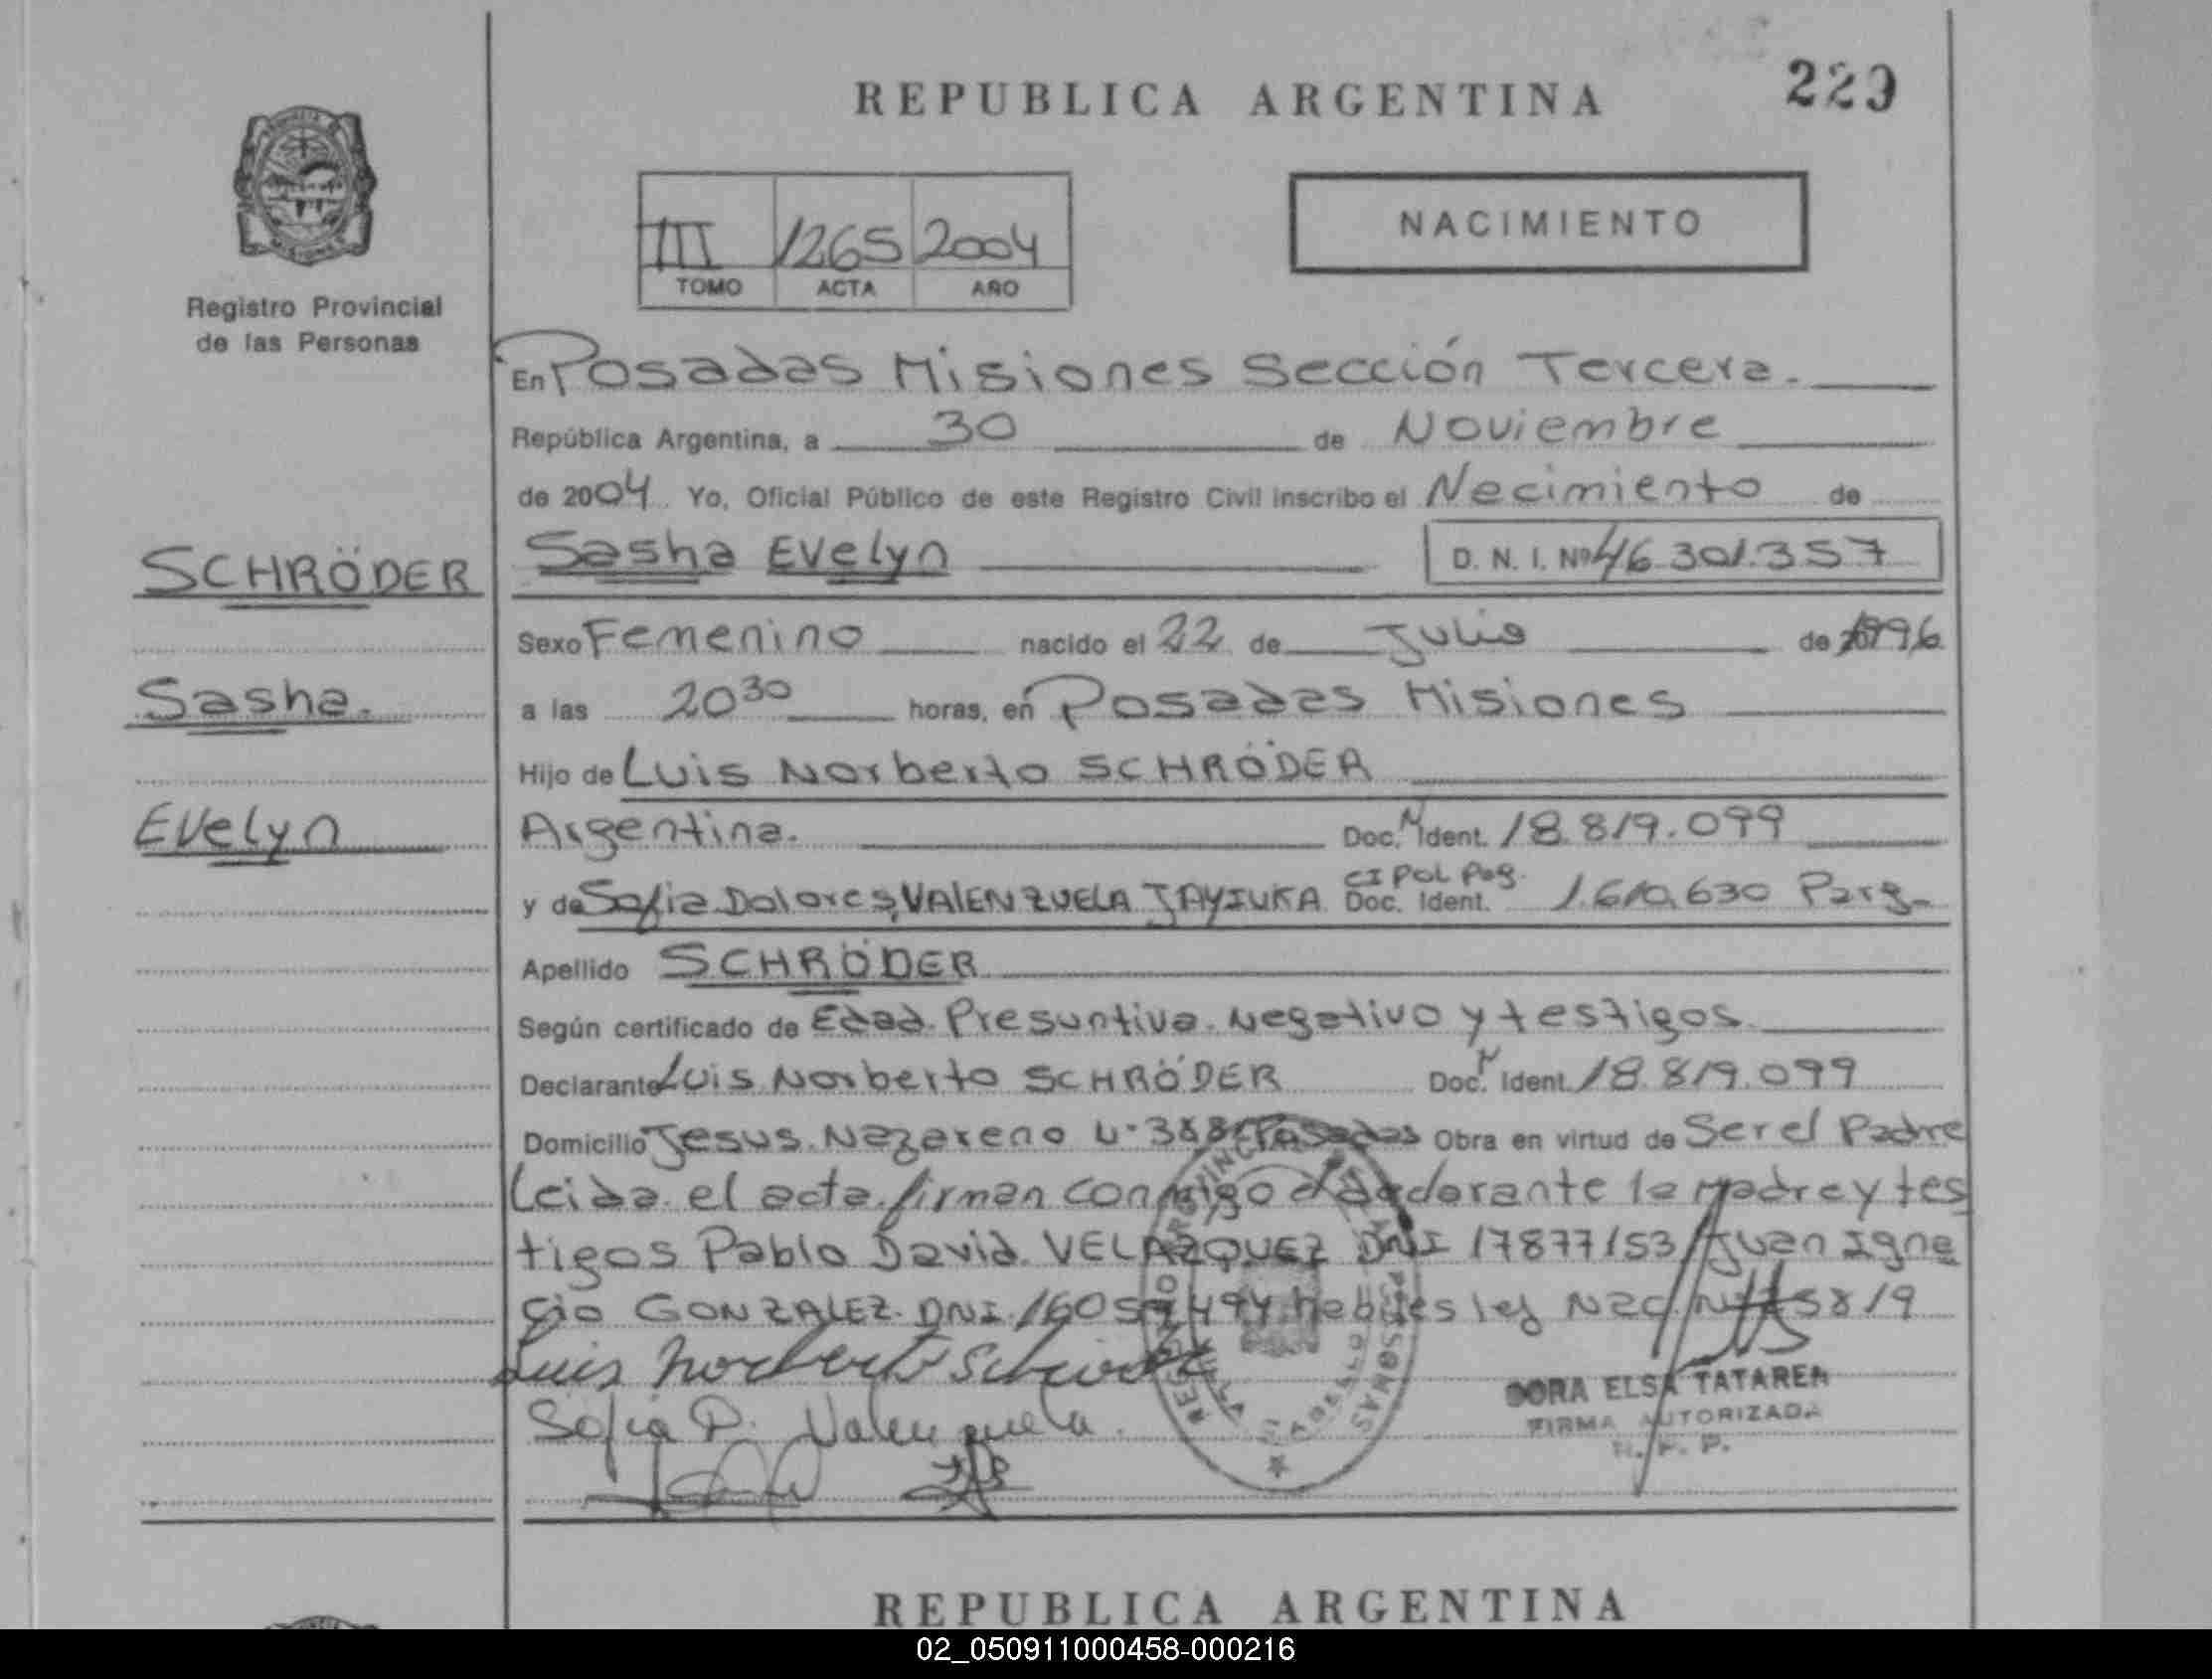 REPUBLICA ARGENTINA
229
III 1265 2004
TOMO ACTA AÑO
NACIMIENTO
Registro Provincial
de las Personas
En Posadas Misiones Sección Tercera.
República Argentina, a 30 de Noviembre
de 2004 Yo, Oficial Público de este Registro Civil inscribo el Nacimiento de
SCHRÖDER
Sasha Evelyn D. N. I. Nº 46.301.357
Sexo Femenino nacido el 22 de Julio de 1996
Sasha.
a las 20 30 horas, en Posadas Misiones
Hijo de Luis Norberto SCHRÖDER
Evelyn
Argentina. Doc. N Ident. 18.819.099
y de Sofia Dolores VALENZUELA JAYIUKA CI POL Pag. Doc. Ident. 1.610.630 Parg.
Apellido SCHRÖDER
Según certificado de Edad Presuntiva Negativo y testigos
Declarante Luis Norberto SCHRÖDER Doc. N Ident. 18.819.099
Domicilio Jesus Nazareno Posadas Obra en virtud de Ser el Padre
Leida el acta firman conmigo el declarante la Madre y tes
tigos Pablo David VELAZQUEZ DNI 17877153 Juan Igna
cio GONZALEZ DNI habiles ley Nac.
Luis Norberto Schröder
Sofia D. Valenzuela
DORA ELSA TATAREN
FIRMA AUTORIZADA
R. P. P.
REPUBLICA ARGENTINA
02_050911000458-000216